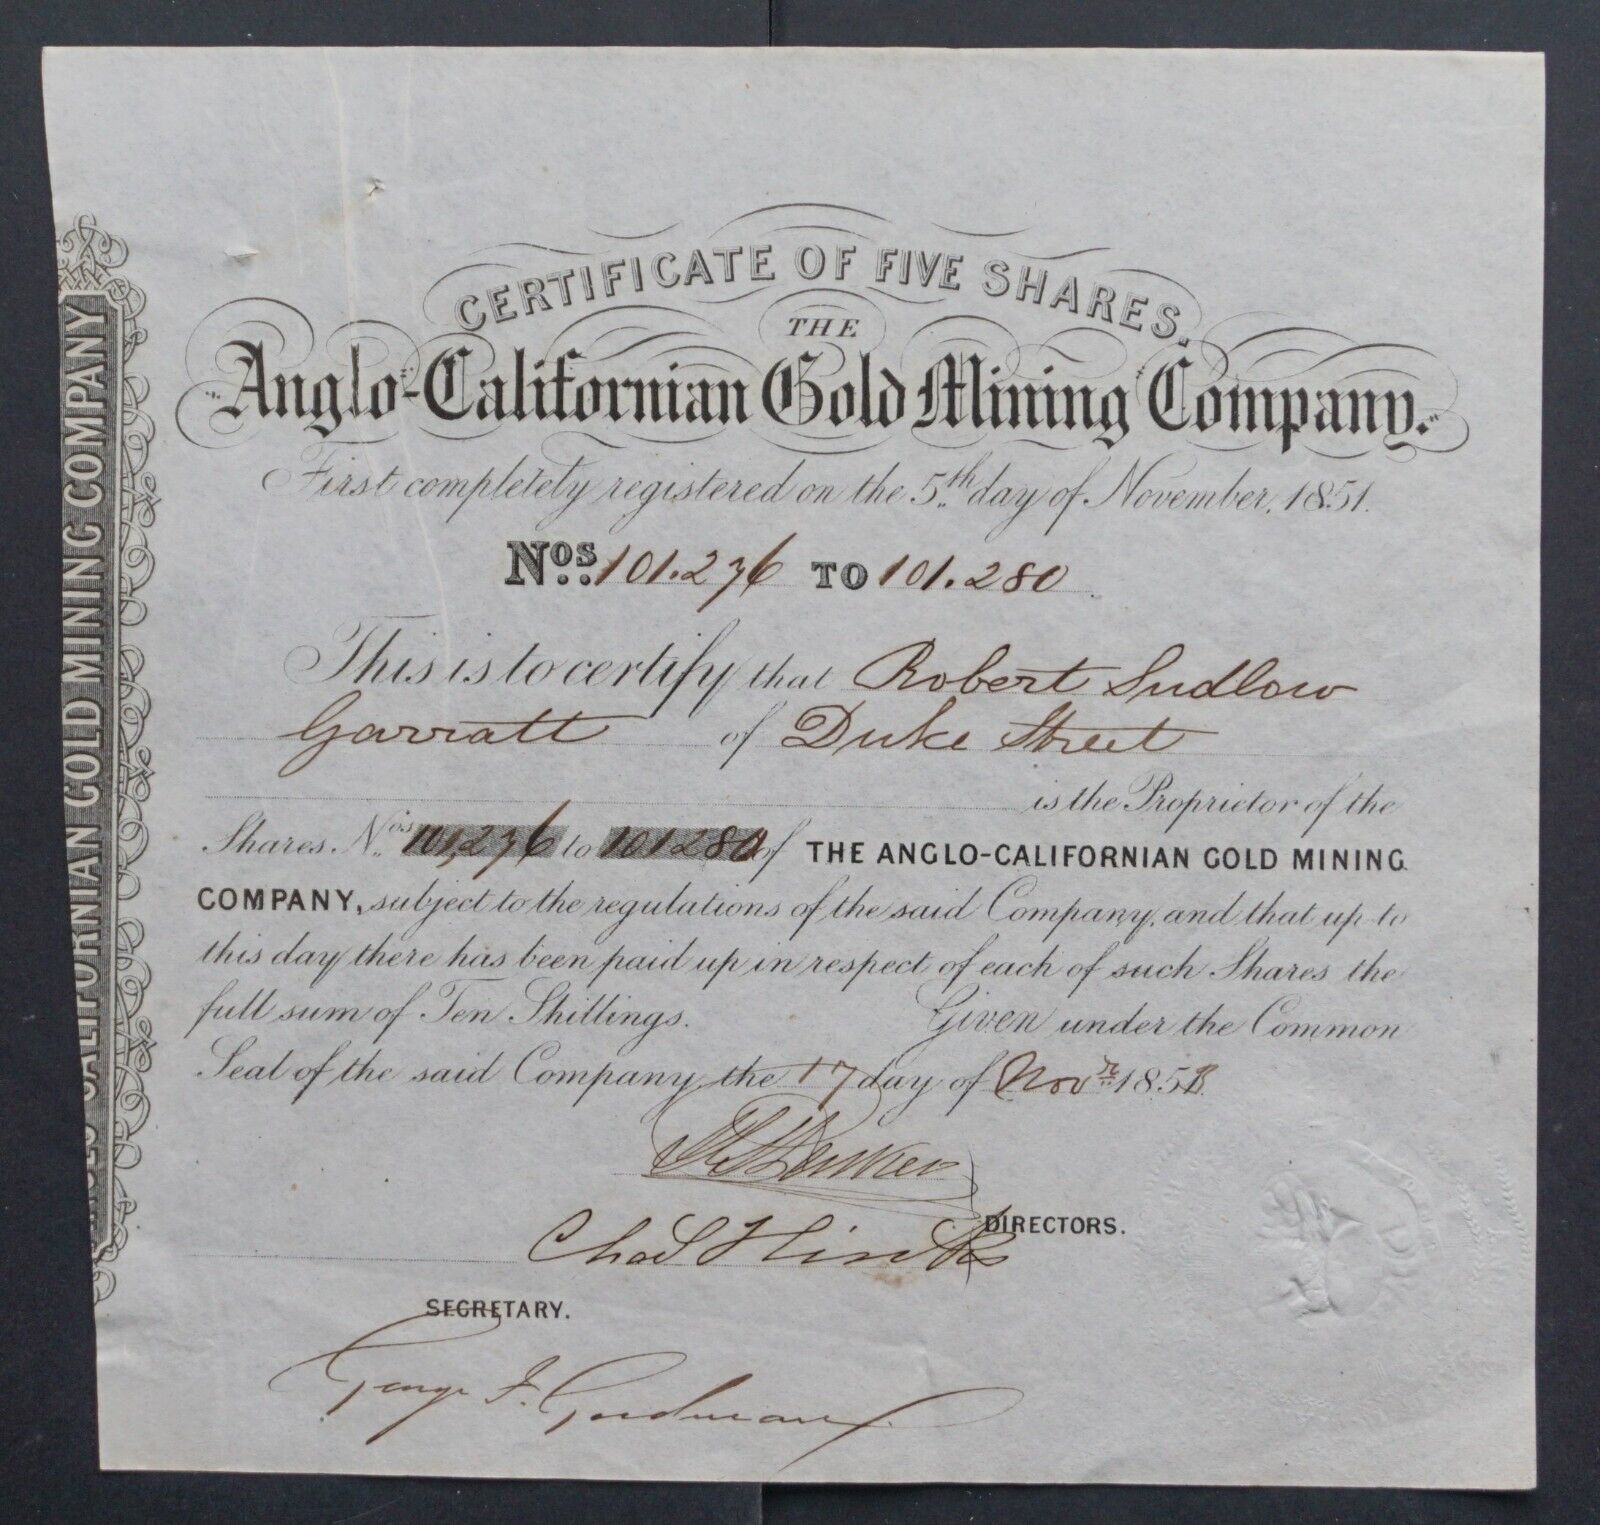 CERTIFICATE OF FIVE SHARES.
THE
Anglo-Californian Gold Mining Company.
First completely registered on the 5th day of November, 1851.
Nos. 101.276 TO 101.280
This is to certify that Robert Sudlow
Garratt of Duke Street
is the Proprietor of the
Shares Nos. 101,276 to 101280 of THE ANGLO-CALIFORNIAN GOLD MINING
COMPANY, subject to the regulations of the said Company, and that up to
this day there has been paid up in respect of each of such Shares the
full sum of Ten Shillings. Given under the Common
Seal of the said Company the 17 day of Novr 185
DIRECTORS.
Chas Hincks
SECRETARY.
George F. Goodman
CALIFORNIAN GOLD MINING COMPANY